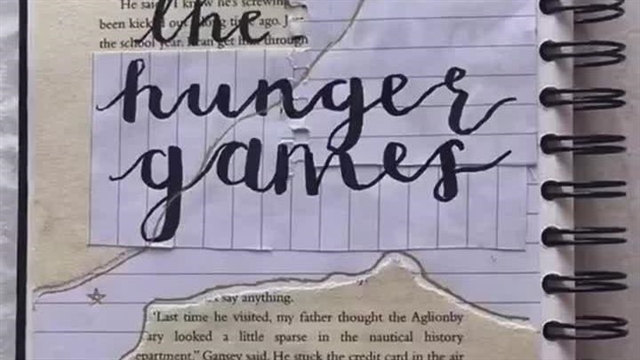 He said, "I know he's screwing
been kicked out a long time ago. J
the school year. I can get him through
the
hunger
games
say anything.
"Last time he visited, my father thought the Aglionby
ary looked a little sparse in the nautical history
epartment," Gansey said. He stuck the credit card in the air